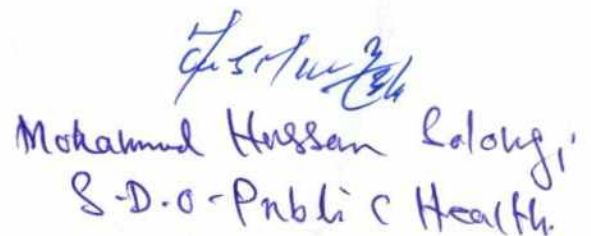 Mohammad Hussan Solongi
S.D.O-Public Health.